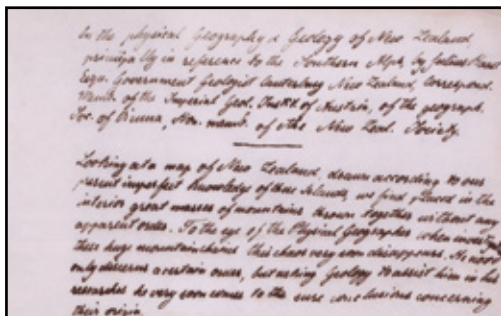 In the physical Geography & Geology of New Zealand,
principally in reference to the Southern Alps, by Julius Haast
Esqu. Government Geologist Canterbury New Zealand, Correspond.
Memb. of the Imperial Geol. of Austria, of the geograph.
Soc. of Vienna, Hon. memb. of the New Zeal. Society.
Looking at a map of New Zealand, drawn according to our
present imperfect knowledge of those Islands, we find placed in the
interior great masses of mountains thrown together without any
apparent order. To the eye of the Physical Geographer when investig
these huge mountainchains this chaos very soon disappears. He not
only discerns a certain order, but asking Geology to assist him in his
researches he very soon comes to the sure conclusions concerning
their origin.